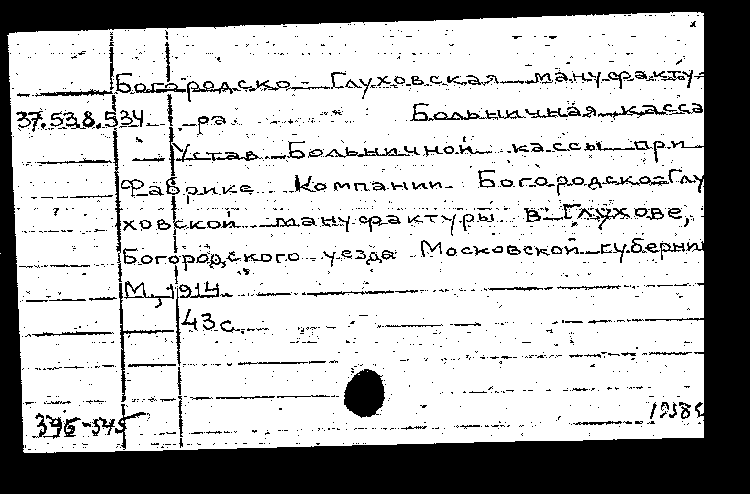 Богородско-Глуховская мануфакту-
37.538.534 ра Больничная касса
Устав Больничной кассы при
Фабрике Компании Богородско-Глу
ховской мануфактуры в Глухове,
Богородского уезда Московской губерни
М., 1914.
43 с.